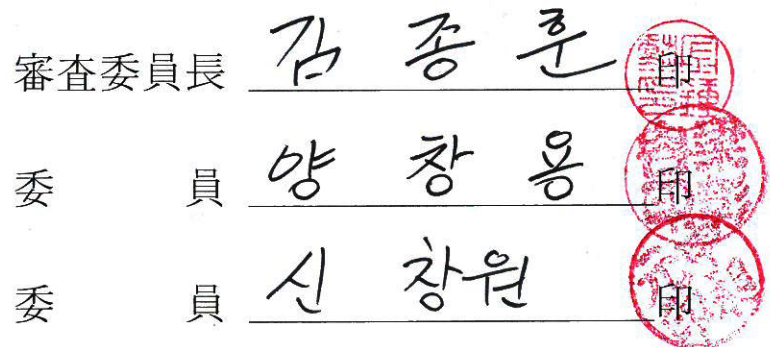 審査委員長 김 종 훈 印
委 員 양 창 용 印
委 員 신 창원 印